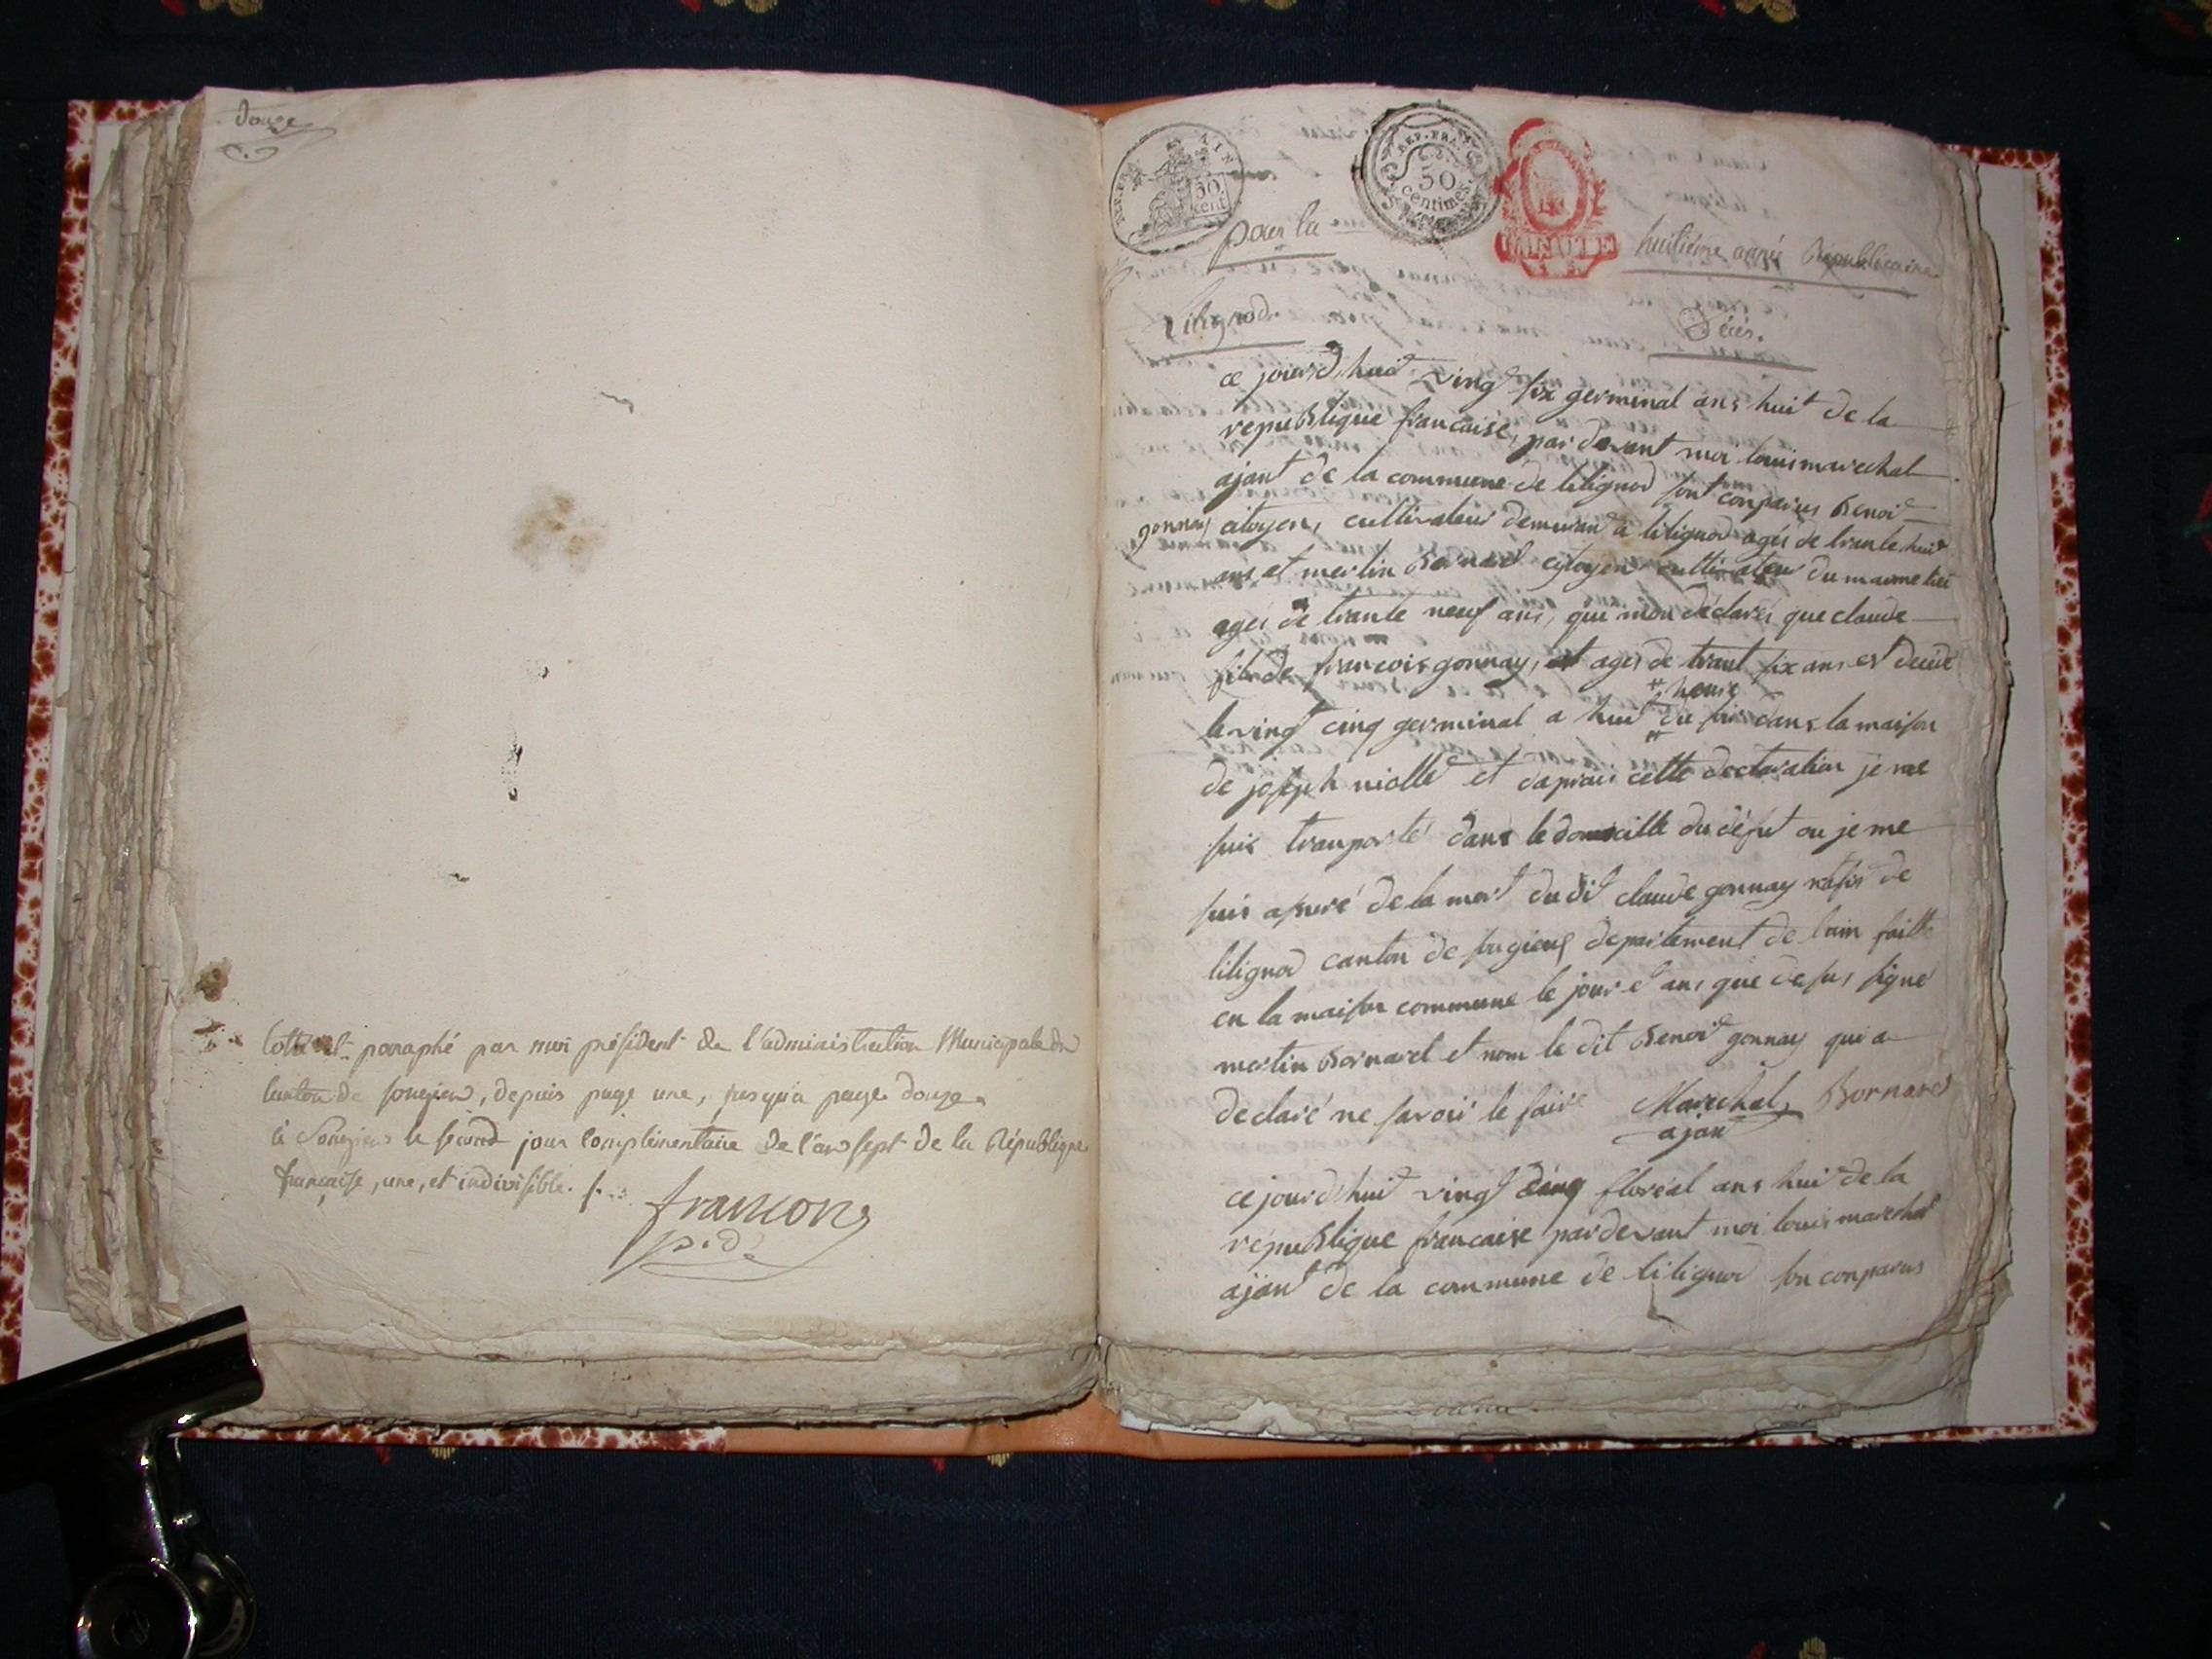 douze
Cotté et paraphé par moi président de l'administration Municipale du
Canton de Songieu, depuis page une, jusqu'à page douze.
à Songieu le second jour complémentaire de l'an sept de la République
française, une, et indivisible.
francon
p.d
REP. FRA.
50
cent
REP. FRA.
50
centimes
pour la huitième année Républicaine
Litignod. Décès.
ce jourd'huit vingt six germinal ans huit de la
republique francaise, par devant moi louis marechal
ajant de la commune de litignod sont conparus Benoit
gonnay citoyen, cultivateur demurant a litignod agés de trante huit
ans et mertin Bornard citoyen cultivateur du maeme lieu
agés de trante neuf ans, qui mon déclarés que claude
fils de francois gonnay, et ages de trant six ans est decédé
heure
le vingt cinq germinal a huit du soir dans la maison
de joseph niollet et daprais cette declaration je me
suis tranporté dans le domicille du défut ou je me
suis assuré de la mort du dit claude gonnay natifs de
litignod canton de songieux departement de lain faitte
en la maison commune le jour e ans que desus signé
mertin Bornard et nom le dit Benoit gonnay qui a
declaré ne savoir le faire Marechal Bornard
ajan
ce jourd'huit vingt cinq floréal ans huit de la
republique francaise par devant moi louis marechal
ajant de la commune de litignod son conparus